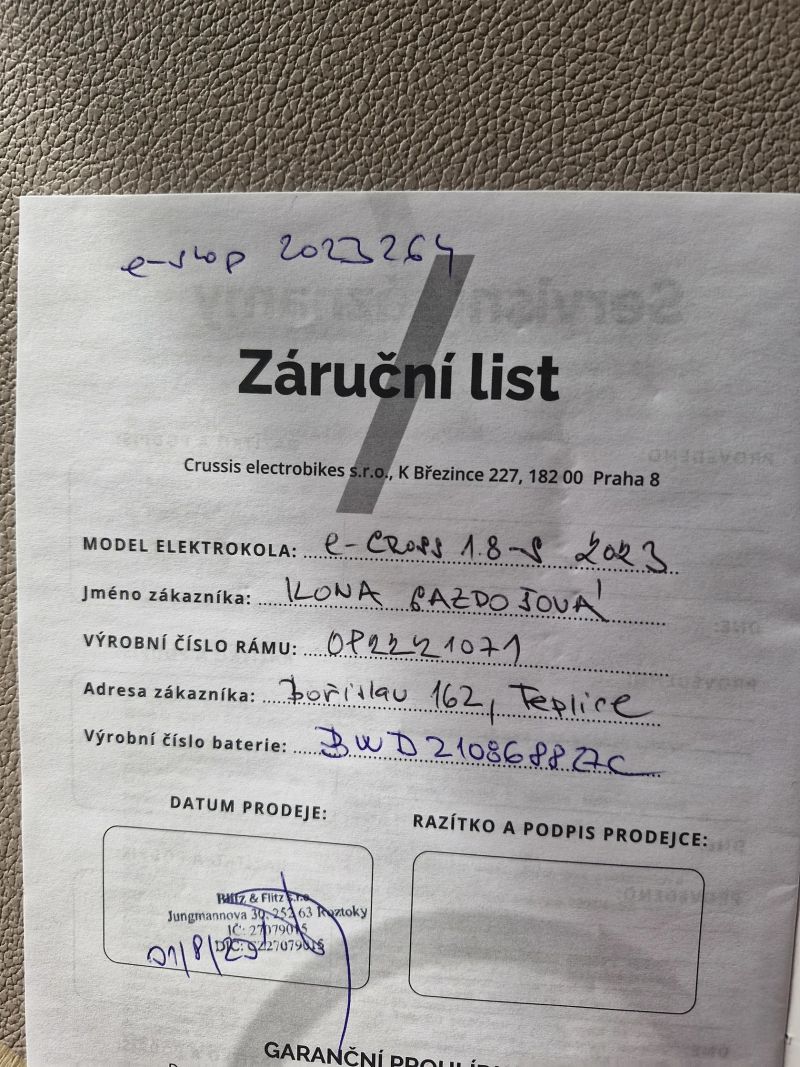 e-shop 2023264
Záruční list
Crussis electrobikes s.r.o., K Březince 227, 182 00 Praha 8
MODEL ELEKTROKOLA: e-CROSS 1.8-S 2023
Jméno zákazníka: ILONA GAZDOŠOVÁ
VÝROBNÍ ČÍSLO RÁMU: OP2221071
Adresa zákazníka: Bořislav 162, Teplice
Výrobní číslo baterie:
DATUM PRODEJE:
RAZÍTKO A PODPIS PRODEJCE:
Blitz & Flitz s.r.o.
Jungmannova 30, 252 63 Roztoky
IČ: 27079015
DIČ: CZ27079015
01/8/23
GARANČNÍ